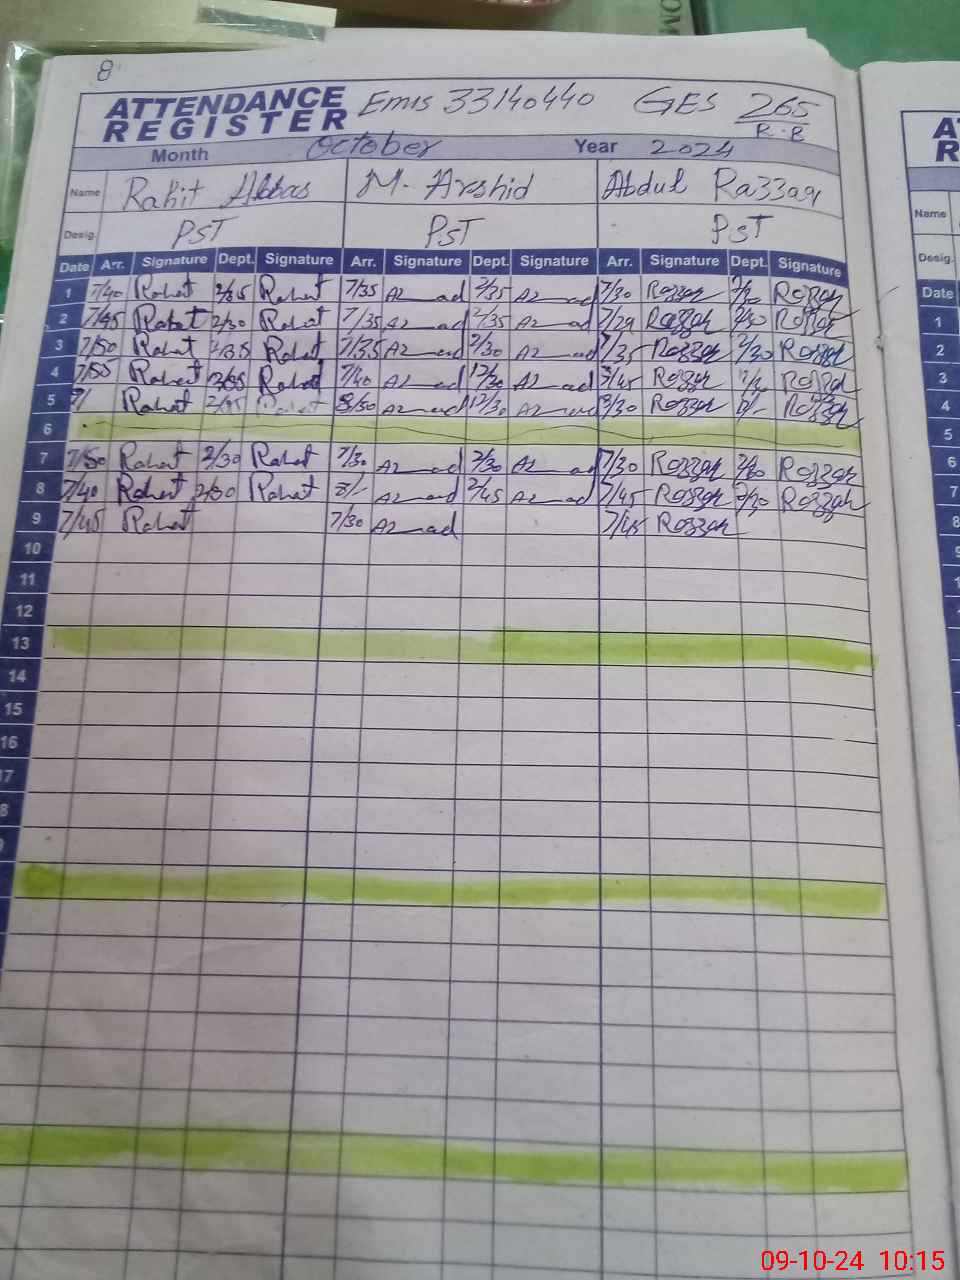 8
ATTENDANCE Emis 33140440 GES 265
REGISTER R.B
Month October Year 2024
Name Rahit Abbas M. Arshid Abdul Razzaq
Desig. PST PST PST
Date Arr. Signature Dept. Signature Arr. Signature Dept. Signature Arr. Signature Dept. Signature
1 7/40 Rahat 2/35 Rahat 7/35 2/35 7/30 Razzaq Razzaq
2 7/45 Rahat 2/30 Rahat 7/35 2/35 7/29 Razzaq Razzaq
3 7/50 Rahat Rahat 7/35 2/30 7/35 Razzaq 2/30 Razzaq
4 7/55 Rahat Rahat 7/40 12/30 Razzaq Razzaq
5 Rahat Rahat 8/30 12/30 8/30 Razzaq Razzaq
6
7 7/50 Rahat 2/30 Rahat 7/30 2/30 7/30 Razzaq Razzaq
8 7/40 Rahat 2/30 Rahat 8/- 2/45 7/45 Razzaq Razzaq
9 7/45 Rahat 7/30 7/45 Razzaq
10
11
12
13
14
15
16
17
8
Name
Desig.
Date
1
2
3
4
5
6
7
8
09-10-24 10:15